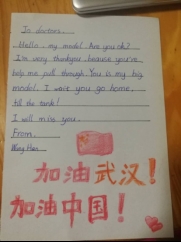 To doctors.
Hello, my model. Are you ok?
I'm very thankyou, because you're
help me pull through. You is my big
model. I wait you go home.
till the tank!
I will miss you.
From.
加油武汉！
加油中国！